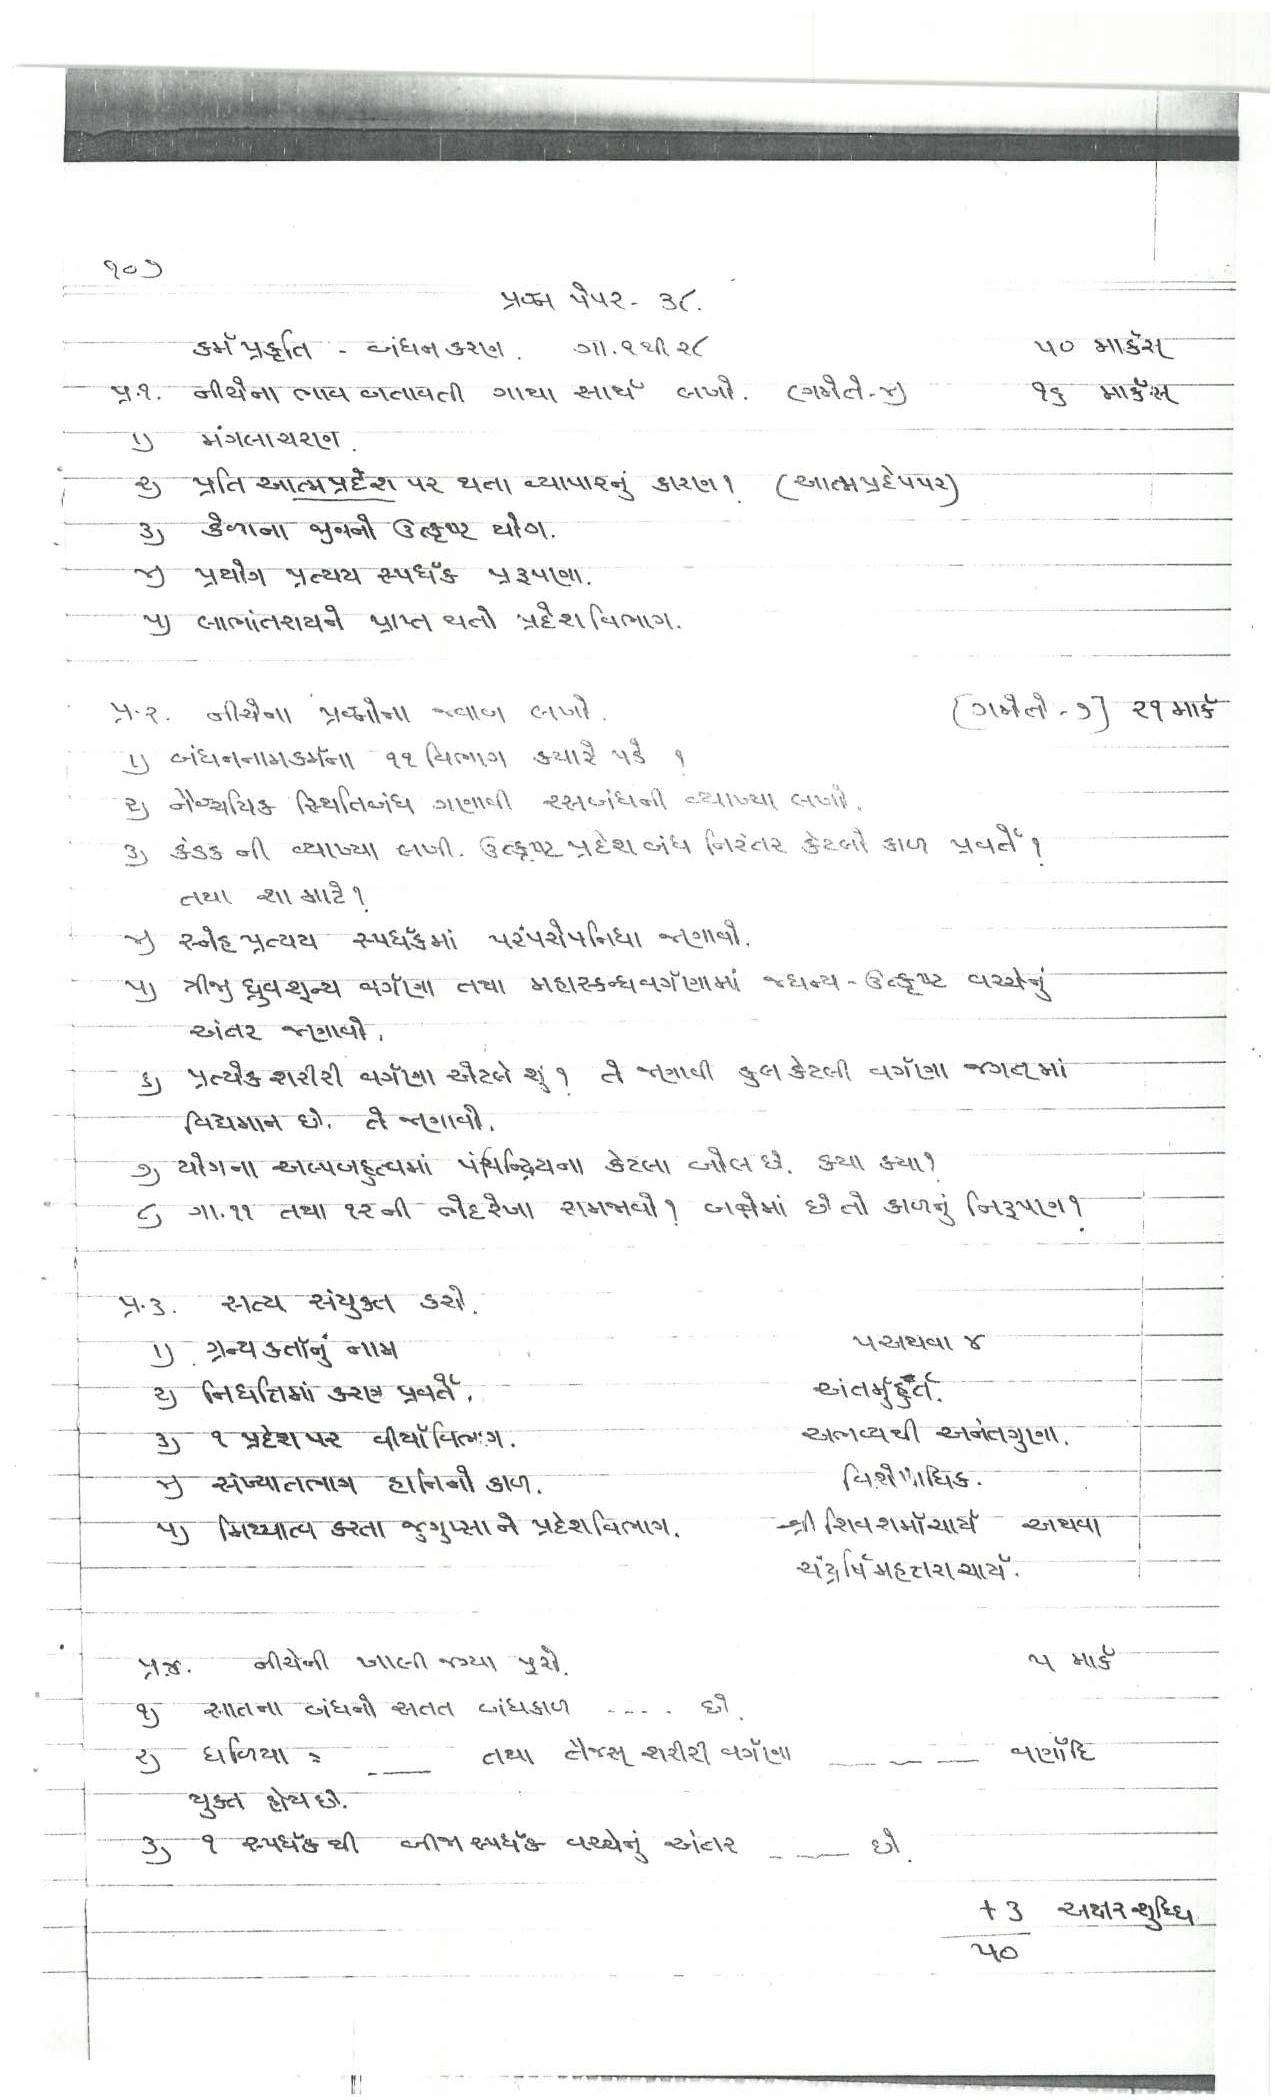 ૧૦૭
પ્રશ્ન પેપર - ૩૮.
કર્મપ્રકૃતિ - બંધનકરણ. ગા.૧થી૨૮ ૫૦ માર્કસ્
પ્ર.૧. નીચેના ભાવ બતાવતી ગાથા સાર્થ લખો. (ગમેતે-૪) ૧૬ માર્કસ્
૧) મંગલાચરણ.
૨) પ્રતિ આત્મપ્રદેશ પર થતા વ્યાપારનું કારણ? (આત્મપ્રદેપપર)
૩) કેળાના જીવનો ઉત્કૃષ્ટ યોગ.
૪) પ્રયોગ પ્રત્યય સ્પર્ધક પ્રરૂપણા.
૫) લાભાંતરાયને પ્રાપ્ત થતો પ્રદેશવિભાગ.
પ્ર.૨. નીચેના પ્રશ્નોના જવાબ લખો. [ગમેતે -૭] ૨૧માર્ક
૧) બંધનનામકર્મના ૧૧ વિભાગ ક્યારે પડે ?
૨) નૈશ્ચયિક સ્થિતિબંધ ગણાવી રસબંધની વ્યાખ્યા લખો.
૩) કંડક ની વ્યાખ્યા લખી. ઉત્કૃષ્ટ પ્રદેશ બંધ નિરંતર કેટલો કાળ પ્રવર્તે?
તથા શા માટે?
૪) સ્નેહ પ્રત્યય સ્પર્ધકમાં પરંપરોપનિધા જણાવો.
૫) ત્રીજી ધ્રુવશૂન્ય વર્ગણા તથા મહાસ્કન્ધવર્ગણામાં જઘન્ય - ઉત્કૃષ્ટ વચ્ચેનું
અંતર જણાવો.
૬) પ્રત્યેક શરીરી વર્ગણા એટલે શું? તે જણાવી કુલ કેટલી વર્ગણા જગત્ માં
વિદ્યમાન છે. તે જણાવો.
૭) યોગના અલ્પબહુત્વમાં પંચિન્દ્રિયના કેટલા બોલ છે. ક્યા ક્યા?
૮) ગા.૧૧ તથા ૧૨ ની ભેદરેખા સમજાવો? બન્નેમાં છે તો કાળનું નિરૂપણ?
પ્ર.૩. સત્ય સંયુક્ત કરો.
૧) ગ્રન્થકર્તાનું નામ ૫અથવા ૪
૨) નિધત્તિમાં કરણ પ્રવર્તે. અંતર્મુહૂર્ત.
૩) ૧ પ્રદેશપર વીર્યાવિભાગ. અભવ્યથી અનંતગુણા.
૪) સંખ્યાતભાગ હાનિનો કાળ. વિશેષાધિક.
૫) મિથ્યાત્વ કરતા જુગુપ્સાને પ્રદેશવિભાગ. શ્રી શિવશર્માચાર્ય અથવા
ચંદ્રર્ષિમહત્તરાચાર્ય.
પ્ર.૪. નીચેની ખાલી જગ્યા પુરો. ૫ માર્ક
૧) સાતના બંધનો સતત બંધકાળ .... છે.
૨) ધળિયા = ___ તથા તૈજસ્ શરીરી વર્ગણા _ _ _ _ વર્ણાદિ
યુક્ત હોય છે.
૩) ૧ સ્પર્ધકથી બીજા સ્પર્ધક વચ્ચેનું અંતર _ ___ છે.
+ ૩ અક્ષરશુધ્ધિ
૫૦